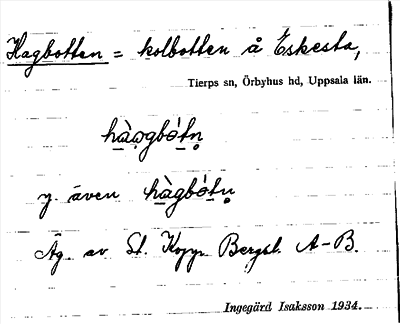 Hagbotten = kolbotten å Eskesta,
Tierps sn, Örbyhus hd, Uppsala län.
hàǫgbótn̥
y. även hàgbótn̥
Äg. av St. Koppr Bergsl. A-B.
Ingegärd Isaksson 1934.